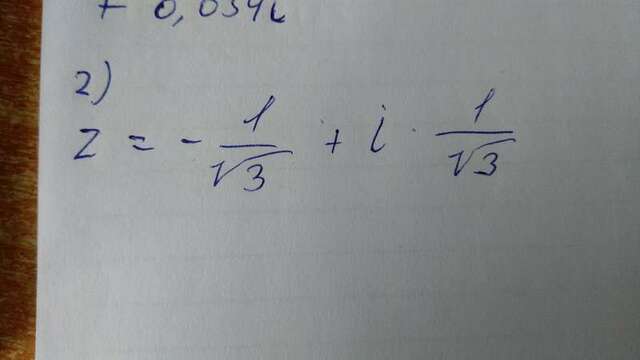 + 0,054i
2)
z = - 1/√3 + i · 1/√3